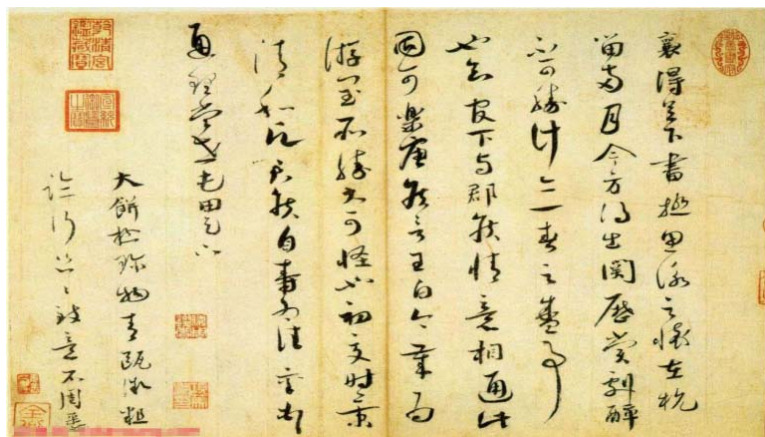 襄得足下書極思詠之懷在杭
留兩月今方得出關歷賞劇醉
不可勝計亦一春之盛事
也知官下與郡侯情意相通此
固可樂唐侯言王白今歲為
游閏所勝大可怪也初夏時景
清和願君侯自壽為佳襄頓首
通理當世屯田足下
大餅極珍物青甌微粗
臨行怱怱致意不周悉